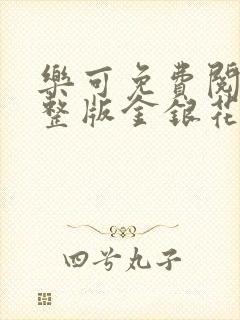 樂可免費閱
整版金銀花
四兮丸子